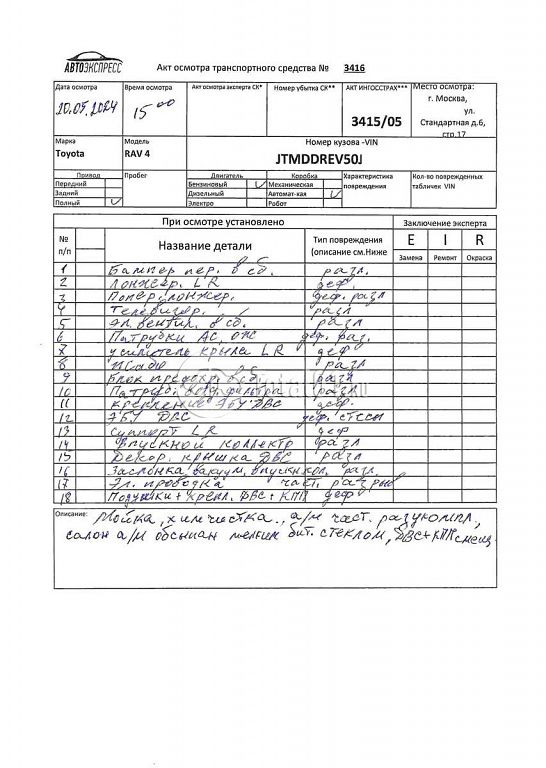 АВТОЭКСПРЕСС
Акт осмотра транспортного средства № 3416
Дата осмотра Время осмотра Акт осмотра эксперта СК* Номер убытка СК** АКТ ИНГОССТРАХ*** Место осмотра:
20.05.2024 15 00 3415/05 г. Москва,
ул.
Стандартная д.6,
стр.17
Марка Модель Номер кузова -VIN
Toyota RAV 4 JTMDDREV50J
Привод Пробег Двигатель Коробка Характеристика Кол-во поврежденных
Передний Бензиновый V Механическая повреждения табличек VIN
Задний Дизельный Автомат-кая V
Полный V Электро Робот
При осмотре установлено Заключение эксперта
№ Название детали Тип повреждения E I R
п/п (описание см.Ниже Замена Ремонт Окраска
1 Бампер пер. в сб. разл.
2 Лонжер. LR деф.
3 Попер. лонжер. деф. разл
4 Телевизор. разл
5 Эл. вентил. в сб. разл
6 Патрубки АС, ОЖ деф. раз.
7 усилитель крыла LR деф
8 разл
9 Блок предохр. в сб. разл
10 Патруб. возд. фильтра разл
11 крепление ЭБУ ДВС деф.
12 ЭБУ ДВС деф.
13 Суппорт LR деф
14 Впускной коллектр разл
15 Декор. крышка ДВС разл
16 Заслонка вакуум. впускн кол. разл.
17 Эл. проводка част. разрыв
18 Подушки + крепл. ДВС + КПП деф
Описание: Мойка, химчистка, а/м част. разукомпл,
салон а/м обсыпан мелким бит. стеклом, ДВС+КПП смещ.